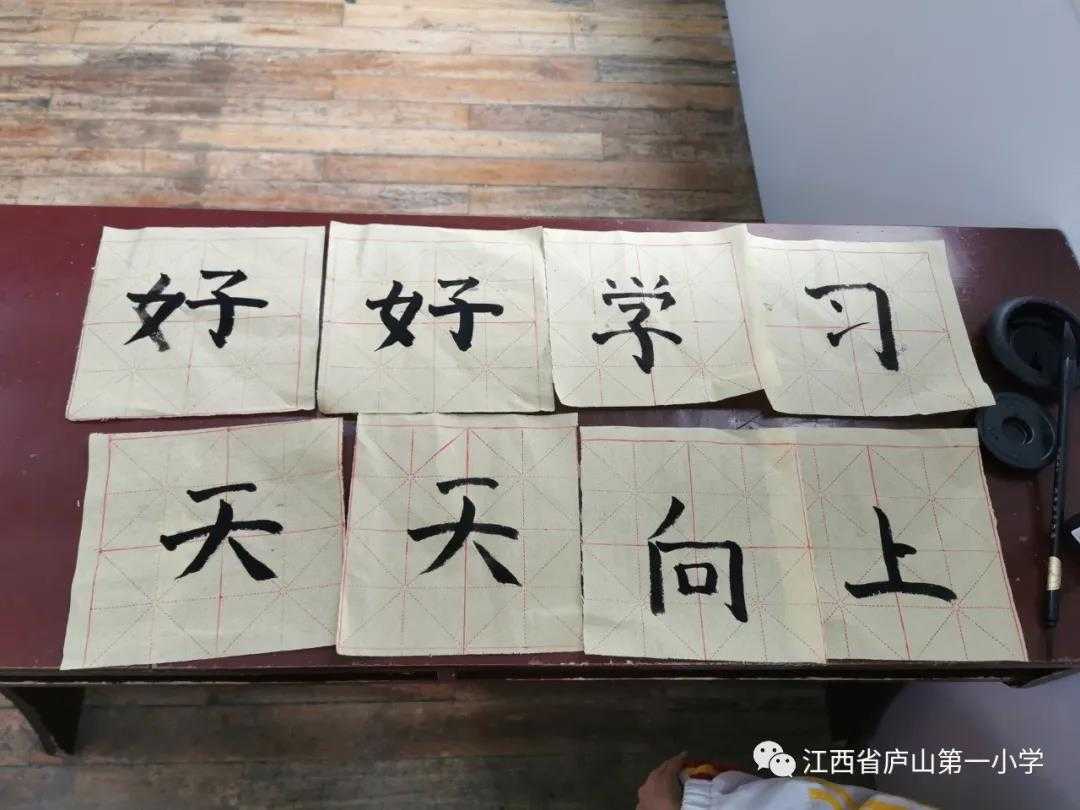 好好学习
天天向上
江西省庐山第一小学